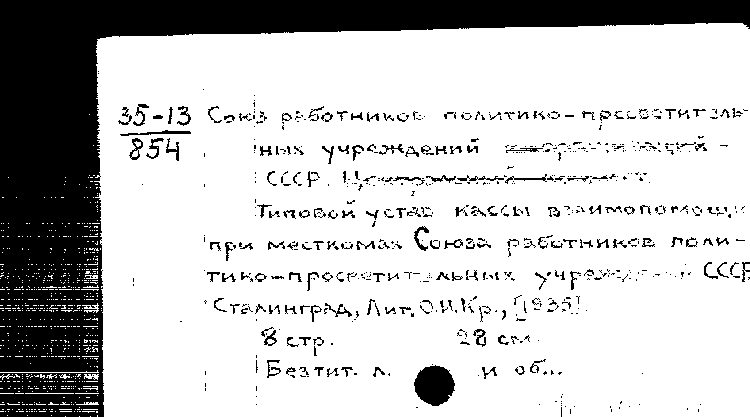 35-13 Союз работников политико-просветитель
854 ных учреждений и организаций -
СССР. Центральный комитет
Типовой устав кассы взаимопомощи
при месткомах Союза работников поли-
тико-просветительных учреждений СССР
Сталинград, Лит. О.И.Кр., [1935].
8 стр. 28 см.
Без тит. л. и об...